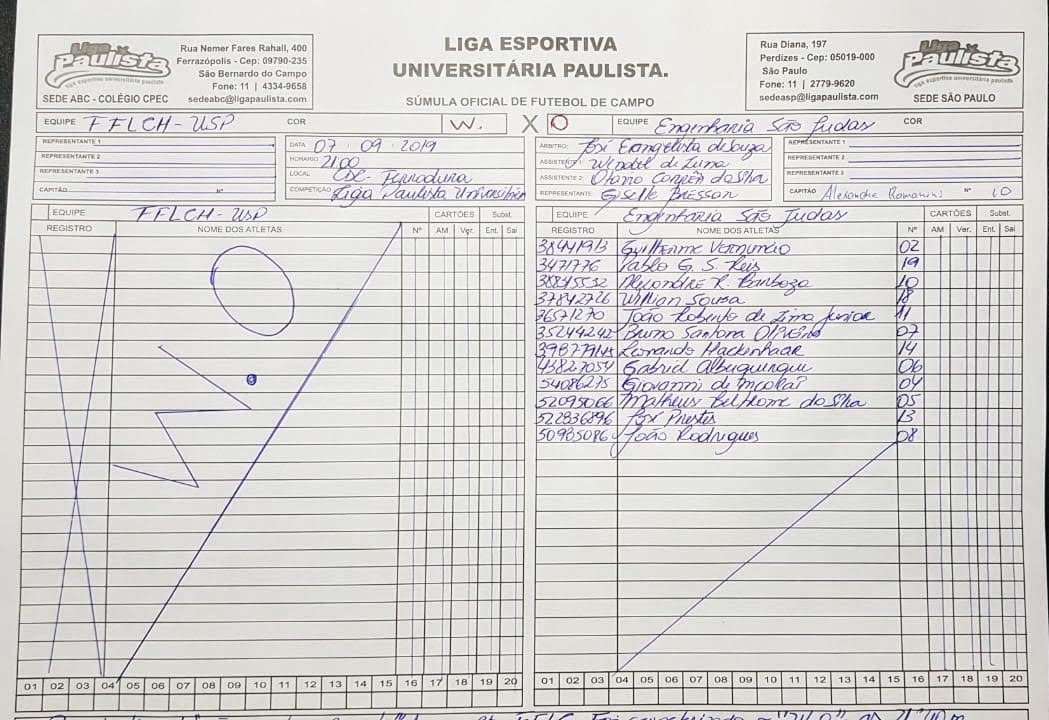 Liga Paulista
liga esportiva universitária paulista
SEDE ABC - COLÉGIO CPEC
Rua Nemer Fares Rahall, 400
Ferrazópolis - Cep: 09790-235
São Bernardo do Campo
Fone: 11 | 4334-9658
sedeabc@ligapaulista.com
LIGA ESPORTIVA
UNIVERSITÁRIA PAULISTA.
SÚMULA OFICIAL DE FUTEBOL DE CAMPO
Rua Diana, 197
Perdizes - Cep: 05019-000
São Paulo
Fone: 11 | 2779-9620
sedeasp@ligapaulista.com
Liga Paulista
liga esportiva universitária paulista
SEDE SÃO PAULO
EQUIPE FFLCH-USP COR W. X O EQUIPE Engenharia São Judas COR
REPRESENTANTE 1
REPRESENTANTE 2
REPRESENTANTE 3
CAPITÃO Nº
DATA 07.09.2019
HORARIO 2100
LOCAL CDC-
COMPETIÇÃO Liga Paulista
ÁRBITRO: Evangelista de Souza
ASSISTENTE 1: de Lima
ASSISTENTE 2: Otavio da Silva
REPRESENTANTE: Giselle Bressan
REPRESENTANTE 1
REPRESENTANTE 2
REPRESENTANTE 3
CAPITÃO Alexandre Nº 10
EQUIPE FFLCH-USP CARTÕES Subst.
REGISTRO NOME DOS ATLETAS Nº AM Ver. Ent. Sai
W.O
01 02 03 04 05 06 07 08 09 10 11 12 13 14 15 16 17 18 19 20
EQUIPE Engenharia São Judas CARTÕES Subst.
REGISTRO NOME DOS ATLETAS Nº AM Ver. Ent. Sai
Guilherme 02
3471776 Pablo G. S. Reis 19
Alexandre R. Barboza 10
37842726 Willian Sousa 18
36571270 João Roberto de Lima Junior 11
35244242 Bruno Santana 07
Leonardo Hackenhaar 14
Gabriel Albuquerque 06
54086275 Giovanni de 04
52095066 Matheus da Silva 05
522836896 Prestes 13
50985086 João Rodrigues 08
01 02 03 04 05 06 07 08 09 10 11 12 13 14 15 16 17 18 19 20